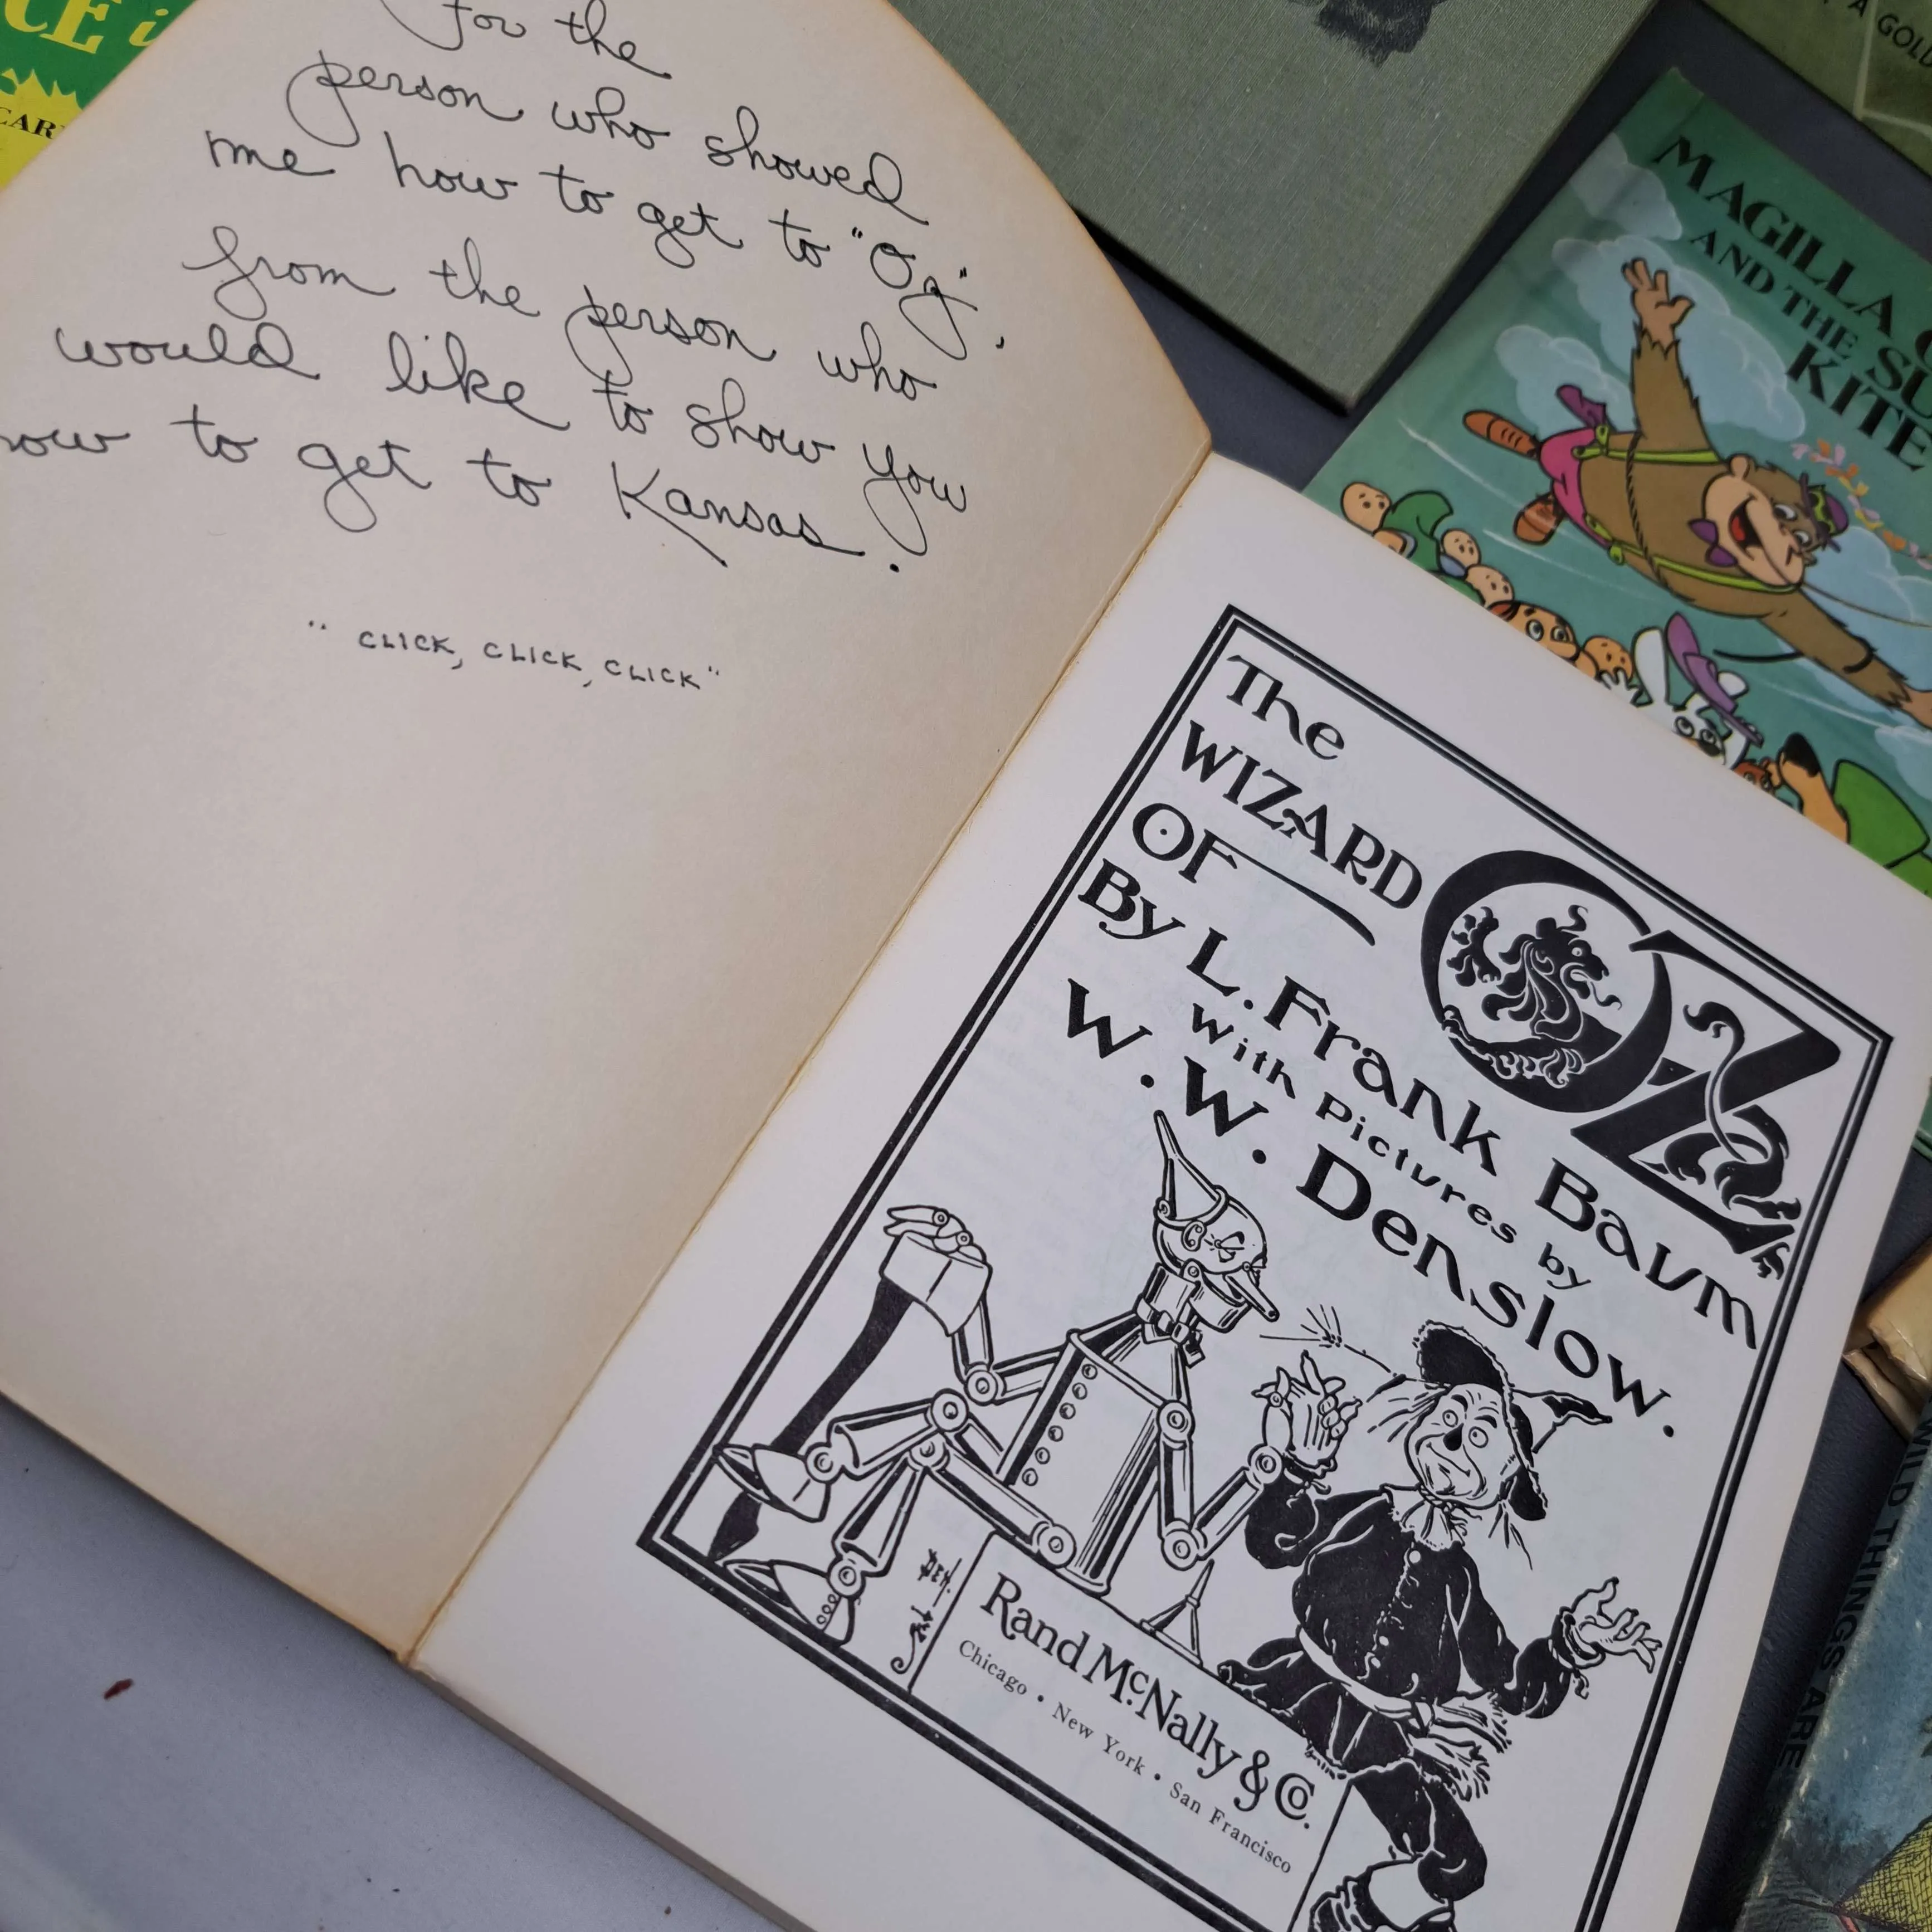 For the
person who showed
me how to get to "Oz",
from the person who
would like to show you
how to get to Kansas.
"CLICK, CLICK, CLICK"
The
WIZARD
OF OZ
By L. Frank Baum
With Pictures by
W. W. Denslow.
Rand McNally & Co.
Chicago • New York • San Francisco
MAGILLA
AND THE
KITE
A GOLD
WILD THINGS ARE